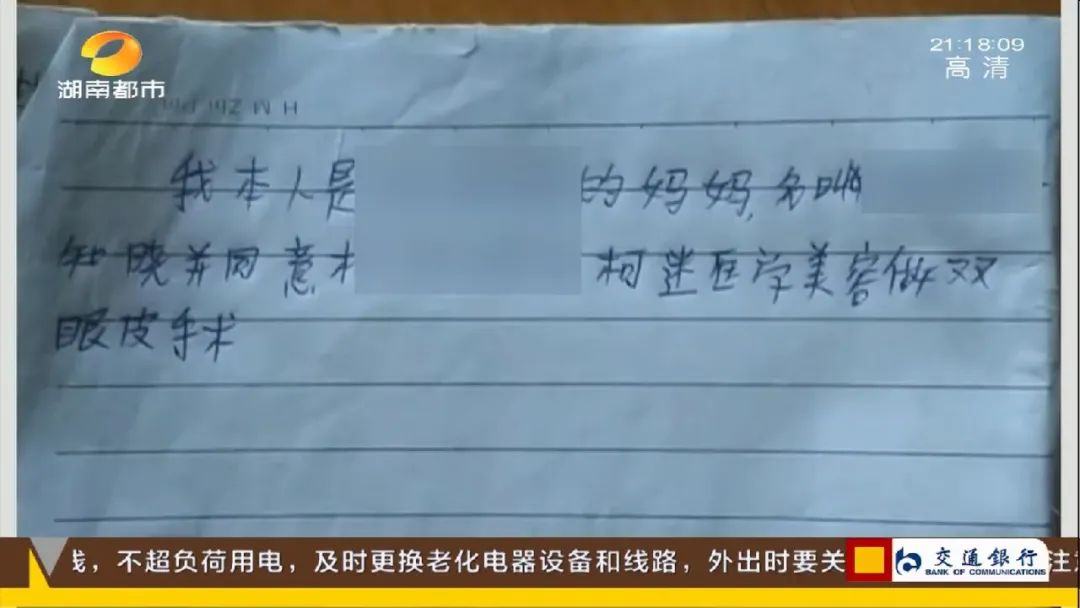 湖南都市
21:18:09
高清
我本人是 的妈妈,名叫
知晓并同意 柯迷医学美容做双
眼皮手术
线，不超负荷用电，及时更换老化电器设备和线路，外出时要关
交通銀行
BANK OF COMMUNICATIONS
注意